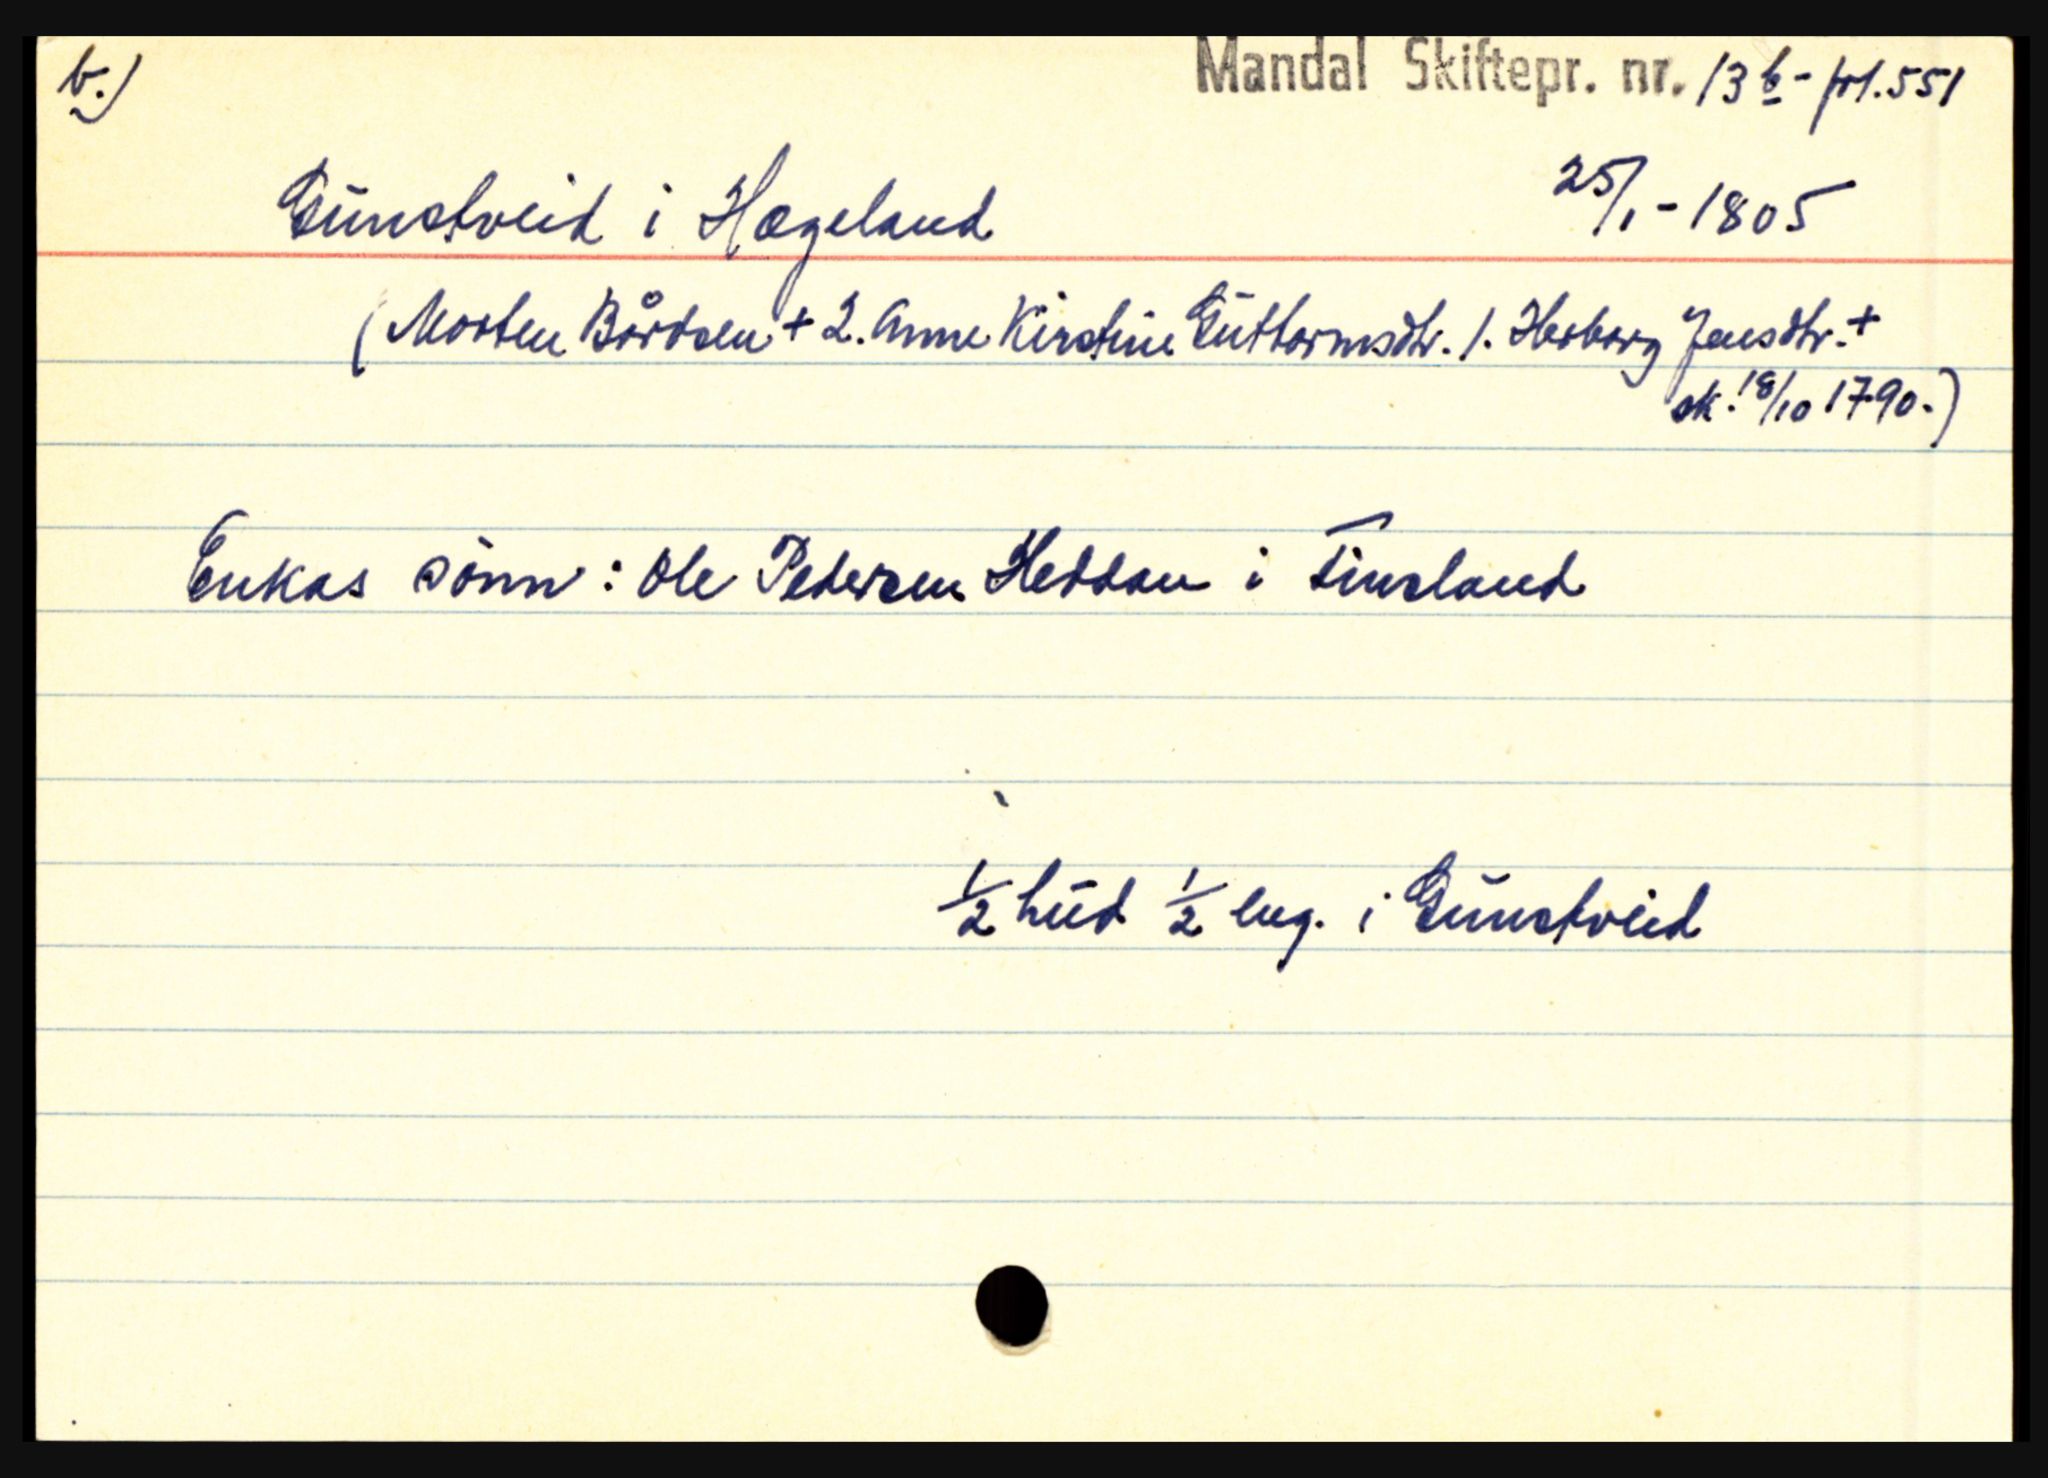 b.) Mandal Skiftepr. nr. 13 b - fol. 551
Gunstveid i Hægeland 25/1 - 1805
(Morten Bårdsen + 2. Anne Kirstine Guttormsdtr. 1. Herborg Jensdtr. +
sk. 18/10 1790.)
Enkas sönn: Ole Pedersen Heddan i Finsland
1/2 hud 1/2 eng. i Gunstveid